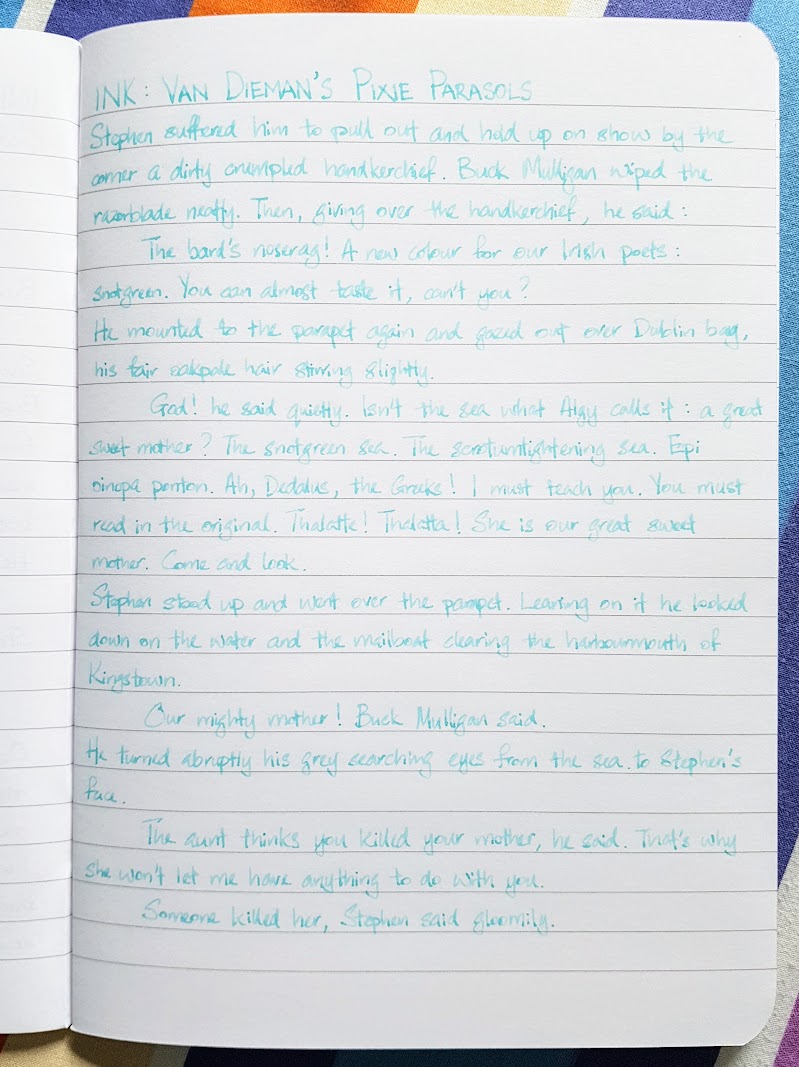 INK: VAN DIEMAN'S PIXIE PARASOLS
Stephen suffered him to pull out and hold up on show by the
corner a dirty crumpled handkerchief. Buck Mulligan wiped the
razorblade neatly. Then, giving over the handkerchief, he said:
The bard's noserag! A new colour for our Irish poets:
snotgreen. You can almost taste it, can't you?
He mounted to the parapet again and gazed out over Dublin bay,
his fair oakpale hair stirring slightly.
God! he said quietly. Isn't the sea what Algy calls it: a great
sweet mother? The snotgreen sea. The scrotumtightening sea. Epi
oinopa ponton. Ah, Dedalus, the Greeks! I must teach you. You must
read in the original. Thalatta! Thalatta! She is our great sweet
mother. Come and look.
Stephen stood up and went over the parapet. Leaning on it he looked
down on the water and the mailboat clearing the harbourmouth of
Kingstown.
Our mighty mother! Buck Mulligan said.
He turned abruptly his grey searching eyes from the sea to Stephen's
face.
The aunt thinks you killed your mother, he said. That's why
she won't let me have anything to do with you.
Someone killed her, Stephen said gloomily.